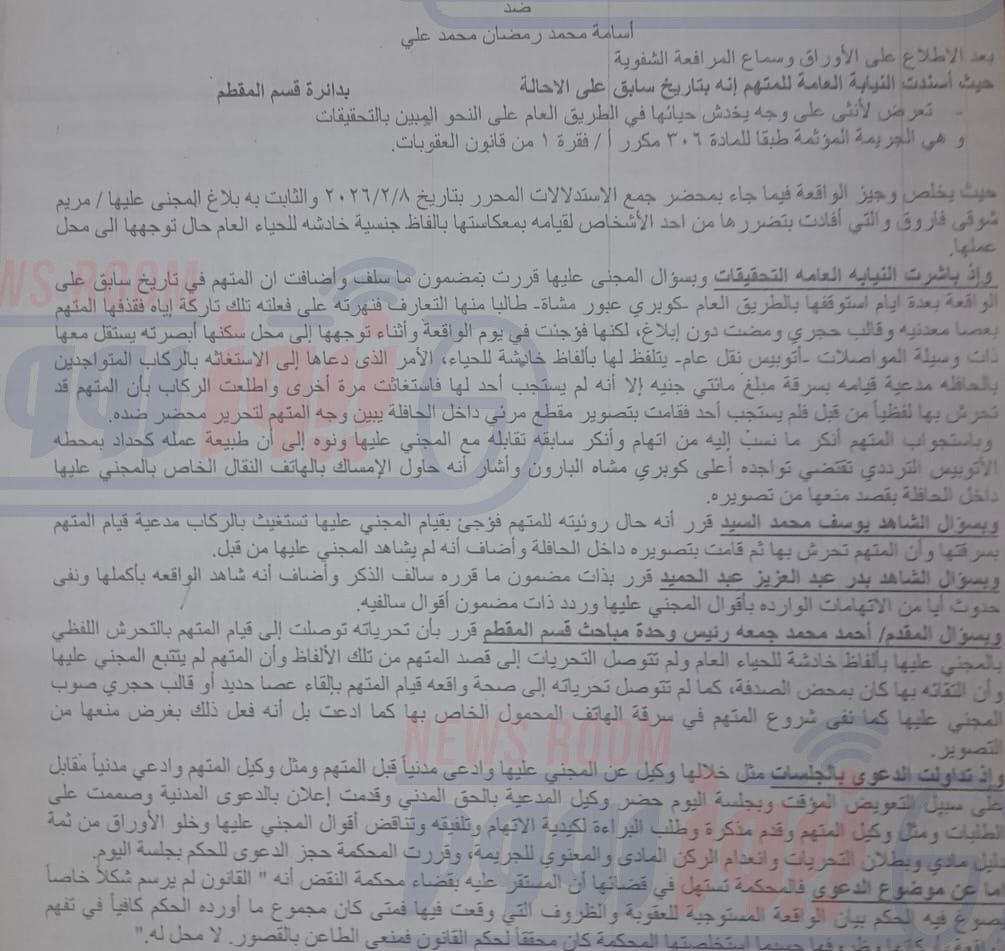 ضد
أسامة محمد رمضان محمد علي
بعد الاطلاع على الأوراق وسماع المرافعة الشفوية
حيث أسندت النيابة العامة للمتهم إنه بتاريخ سابق على الاحالة بدائرة قسم المقطم
- تعرض لأنثى على وجه يخدش حيائها في الطريق العام على النحو المبين بالتحقيقات
و هي الجريمة المؤثمة طبقا للمادة ٣٠٦ مكرر أ / فقرة ١ من قانون العقوبات.
حيث يخلص وجيز الواقعة فيما جاء بمحضر جمع الاستدلالات المحرر بتاريخ ٢٠٢٦/٢/٨ والثابت به بلاغ المجنى عليها / مريم
شوقي فاروق والتي أفادت بتضررها من احد الأشخاص لقيامه بمعاكستها بالفاظ جنسية خادشه للحياء العام حال توجهها الى محل
عملها.
وإذ باشرت النيابه العامه التحقيقات وبسؤال المجنى عليها قررت بمضمون ما سلف وأضافت ان المتهم في تاريخ سابق على
الواقعة بعدة ايام استوقفها بالطريق العام -كوبري عبور مشاة- طالبا منها التعارف فنهرته على فعلته تلك تاركة إياه فقذفها المتهم
بعصا معدنيه وقالب حجري ومضت دون إبلاغ، لكنها فوجئت في يوم الواقعة وأثناء توجهها إلى محل سكنها أبصرته يستقل معها
ذات وسيلة المواصلات -أتوبيس نقل عام- يتلفظ لها بألفاظ خادشة للحياء، الأمر الذى دعاها إلى الاستغاثه بالركاب المتواجدين
بالحافله مدعية قيامه بسرقة مبلغ مائتي جنيه إلا أنه لم يستجب أحد لها فاستغاثت مرة أخرى واطلعت الركاب بأن المتهم قد
تحرش بها لفظياً من قبل فلم يستجب أحد فقامت بتصوير مقطع مرئي داخل الحافلة يبين وجه المتهم لتحرير محضر ضده.
وباستجواب المتهم أنكر ما نسب إليه من اتهام وأنكر سابقه تقابله مع المجني عليها ونوه إلى أن طبيعة عمله كحداد بمحطه
الأتوبيس الترددي تقتضي تواجده أعلى كوبري مشاه البارون وأشار أنه حاول الإمساك بالهاتف النقال الخاص بالمجني عليها
داخل الحافلة بقصد منعها من تصويره.
وبسؤال الشاهد يوسف محمد السيد قرر أنه حال روئيته للمتهم فؤجئ بقيام المجني عليها تستغيث بالركاب مدعية قيام المتهم
بسرقتها وأن المتهم تحرش بها ثم قامت بتصويره داخل الحافلة وأضاف أنه لم يشاهد المجني عليها من قبل.
وبسؤال الشاهد بدر عبد العزيز عبد الحميد قرر بذات مضمون ما قرره سالف الذكر وأضاف أنه شاهد الواقعه بأكملها ونفى
حدوث أيا من الاتهامات الوارده بأقوال المجني عليها وردد ذات مضمون أقوال سالفيه.
وبسؤال المقدم/ أحمد محمد جمعه رئيس وحدة مباحث قسم المقطم قرر بأن تحرياته توصلت إلى قيام المتهم بالتحرش اللفظي
بالمجني عليها بألفاظ خادشة للحياء العام ولم تتوصل التحريات إلى قصد المتهم من تلك الألفاظ وأن المتهم لم يتتبع المجني عليها
وأن التقائه بها كان بمحض الصدفة، كما لم تتوصل تحرياته إلى صحة واقعه قيام المتهم بإلقاء عصا حديد أو قالب حجري صوب
المجني عليها كما نفى شروع المتهم في سرقة الهاتف المحمول الخاص بها كما ادعت بل أنه فعل ذلك بغرض منعها من
التصوير.
وإذ تداولت الدعوى بالجلسات مثل خلالها وكيل عن المجني عليها وادعى مدنياً قبل المتهم ومثل وكيل المتهم وادعي مدنياً مقابل
على سبيل التعويض المؤقت وبجلسة اليوم حضر وكيل المدعية بالحق المدني وقدمت إعلان بالدعوى المدنية وصممت على
الطلبات ومثل وكيل المتهم وقدم مذكرة وطلب البراءة لكيدية الاتهام وتلفيقه وتناقض أقوال المجني عليها وخلو الأوراق من ثمة
دليل مادي وبطلان التحريات وانعدام الركن المادى والمعنوي للجريمة، وقررت المحكمة حجز الدعوى للحكم بجلسة اليوم.
أما عن موضوع الدعوى فالمحكمة تستهل في قضائها أن المستقر عليه بقضاء محكمة النقض أنه " القانون لم يرسم شكلاً خاصاً
يصوغ فيه الحكم بيان الواقعة المستوجبة للعقوبة والظروف التي وقعت فيها فمتى كان مجموع ما أورده الحكم كافياً في تفهم
حسبما استخلصتها المحكمة كان محققاً لحكم القانون فمنعي الطاعن بالقصور. لا محل له."
NEWS ROOM
نيوز رووم
NEWS ROOM
نيوز رووم